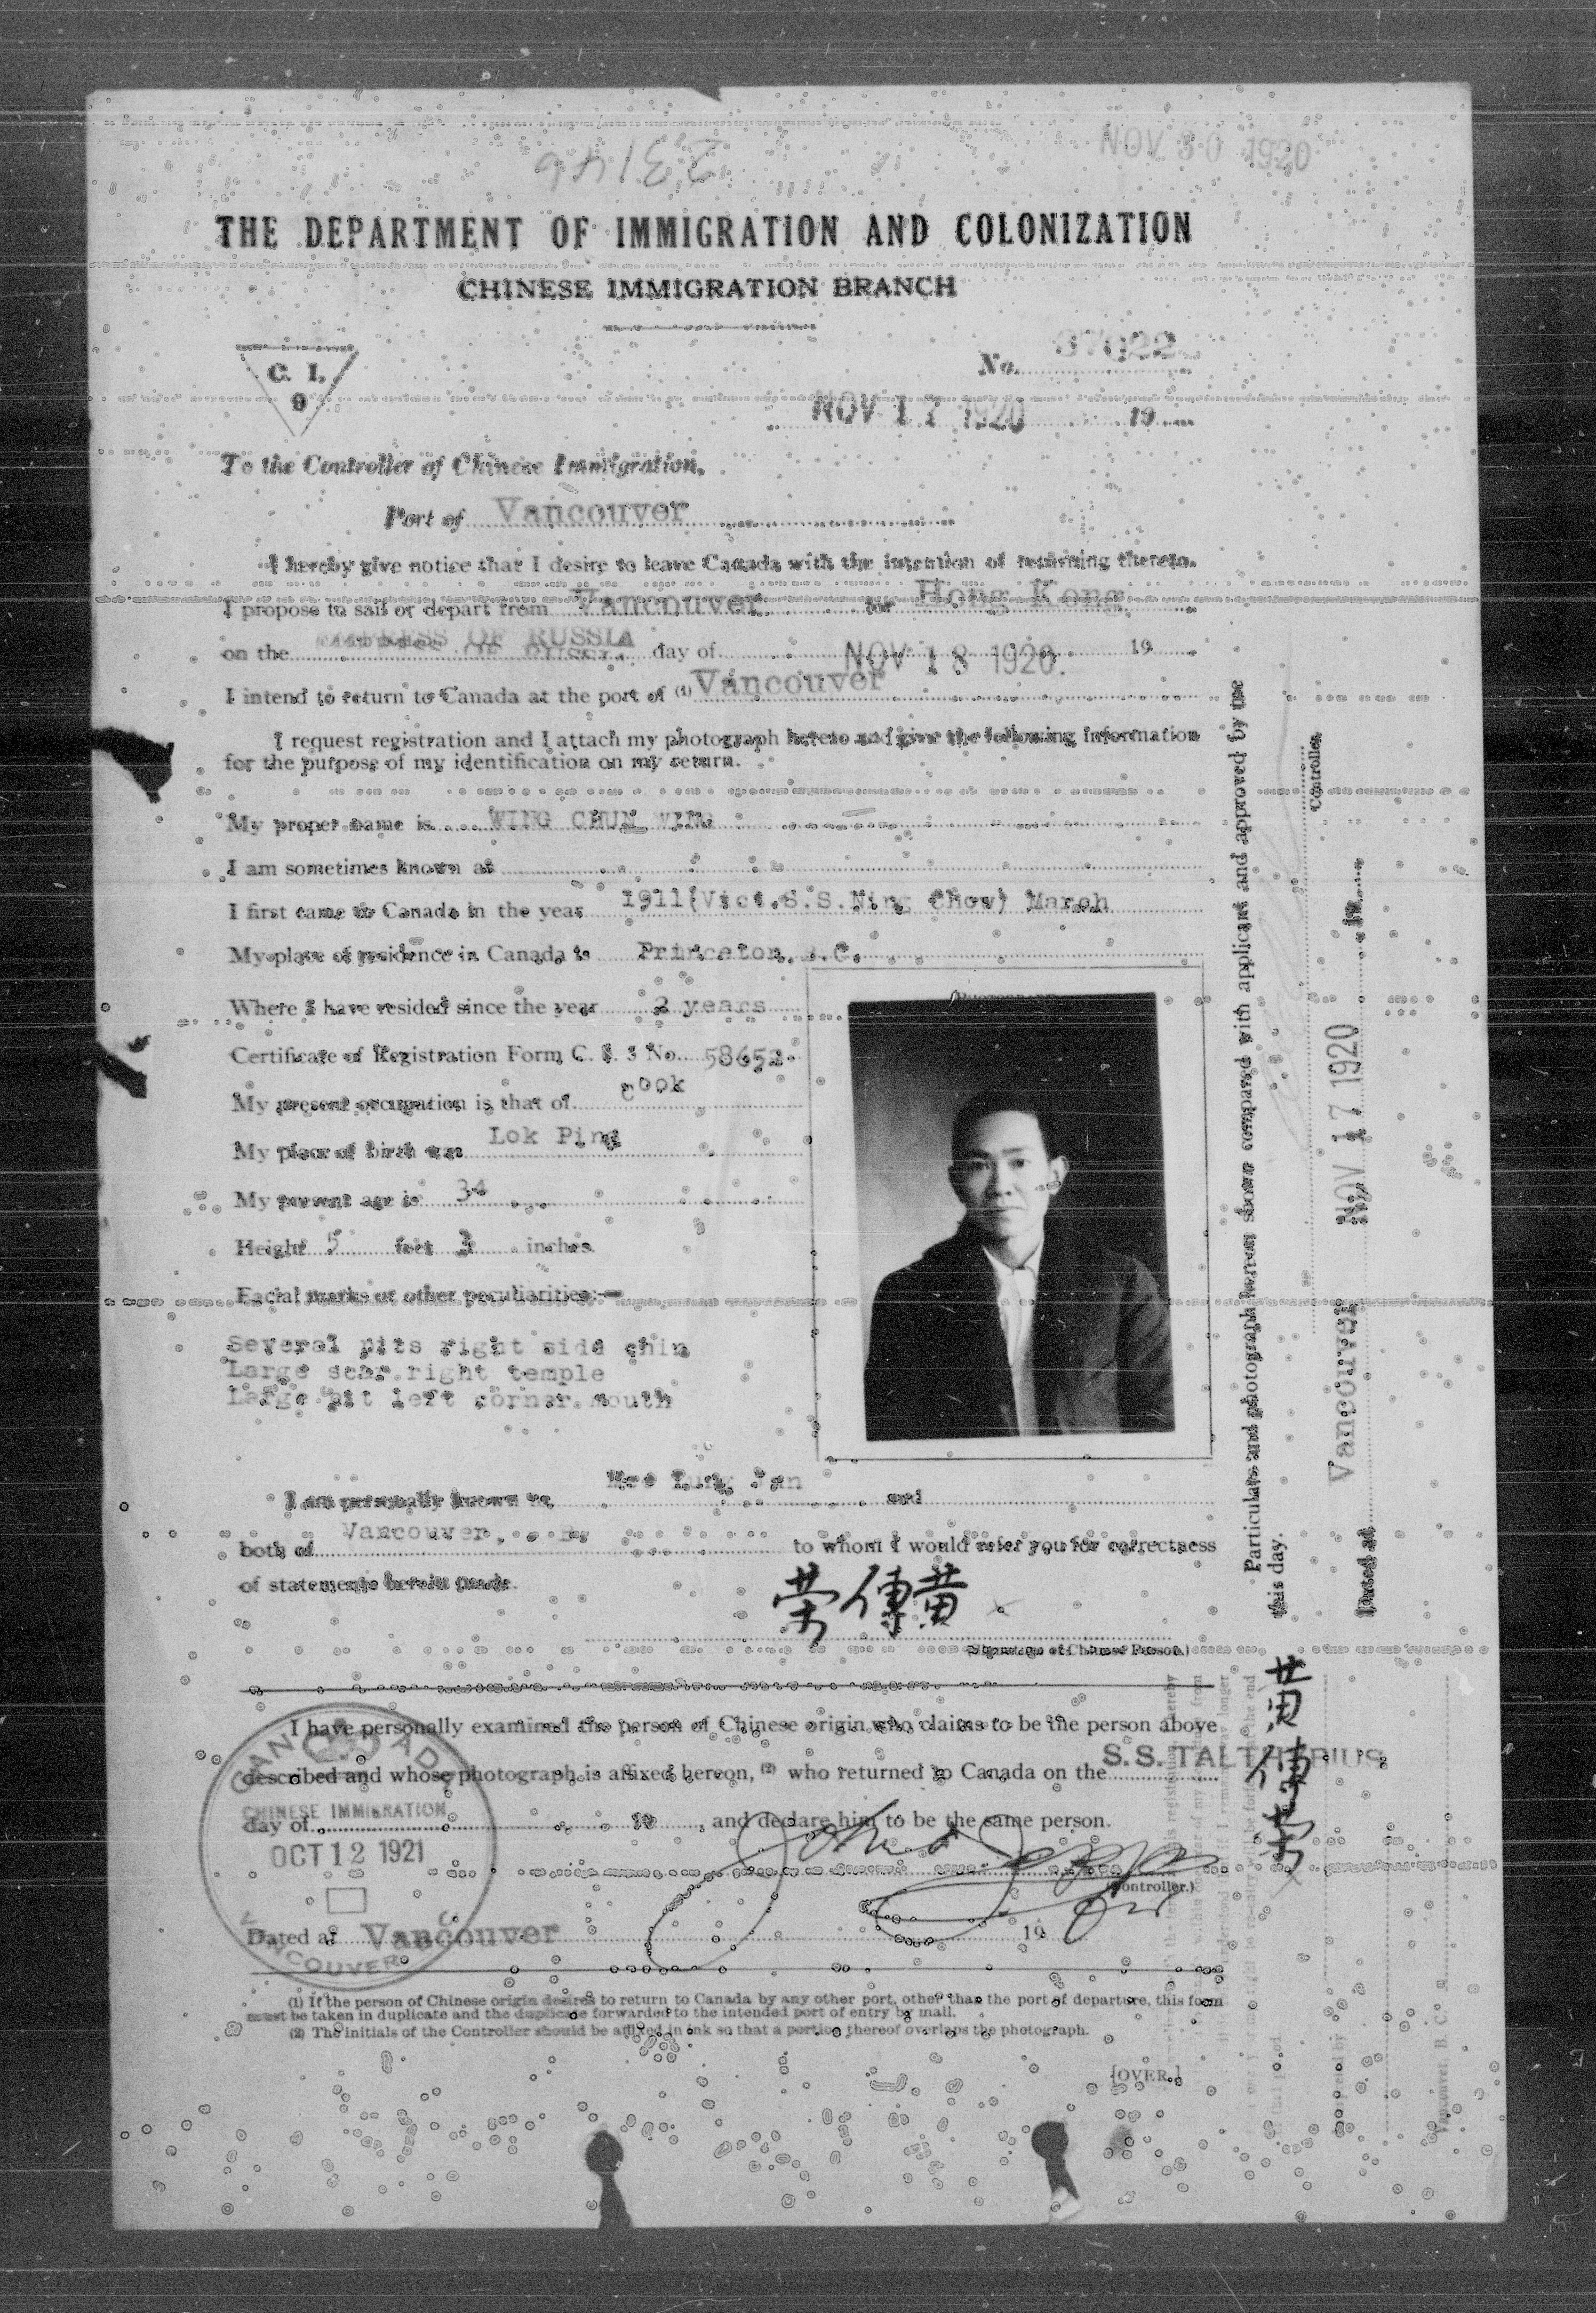 NOV 30 1920
23146
THE DEPARTMENT OF IMMIGRATION AND COLONIZATION
CHINESE IMMIGRATION BRANCH
C. I.
9
No. 37022
NOV 17 1920 19
To the Controller of Chinese Immigration,
Port of Vancouver
I hereby give notice that I desire to leave Canada with the intention of returning thereto.
I propose to sail or depart from Vancouver for Hong Kong
on the EMPRESS OF RUSSIA day of NOV 18 1920. 19
I intend to return to Canada at the port of (1) Vancouver
I request registration and I attach my photograph hereto and give the following information
for the purpose of my identification on my return.
My proper name is WING CHUN WING
I am sometimes known as
I first came to Canada in the year 1911(Vict.S.S.Ning Chow) March
My place of residence in Canada is Princeton, B.C.
Where I have resided since the year 2 years
Certificate of Registration Form C. I. 5 No. 58652
My present occupation is that of cook
My place of birth was Lok Ping
My present age is 34
Height 5 feet 3 inches.
Facial marks or other peculiarities:—
Several pits right side chin
Large scar right temple
Large pit left corner mouth
I am personally known to and
both of Vancouver, B. to whom I would refer you for correctness
of statements herein made.
劳傳黄
(Signature of Chinese Person.)
I have personally examined the person of Chinese origin who claims to be the person above
described and whose photograph is affixed hereon, (2) who returned to Canada on the S.S. TALTHYBIUS,
day of 19 , and declare him to be the same person.
(Controller.)
Dated at Vancouver 19
CANADA
CHINESE IMMIGRATION
OCT 12 1921
VANCOUVER
(1) If the person of Chinese origin desires to return to Canada by any other port, other than the port of departure, this form
must be taken in duplicate and the duplicate forwarded to the intended port of entry by mail.
(2) The initials of the Controller should be affixed in ink so that a portion thereof overlaps the photograph.
[OVER.]
Particulars and photograph hereon shown compared with applicant and approved by me
this day.
Controller.
Dated at Vancouver NOV 17 1920 19
黄傳劳